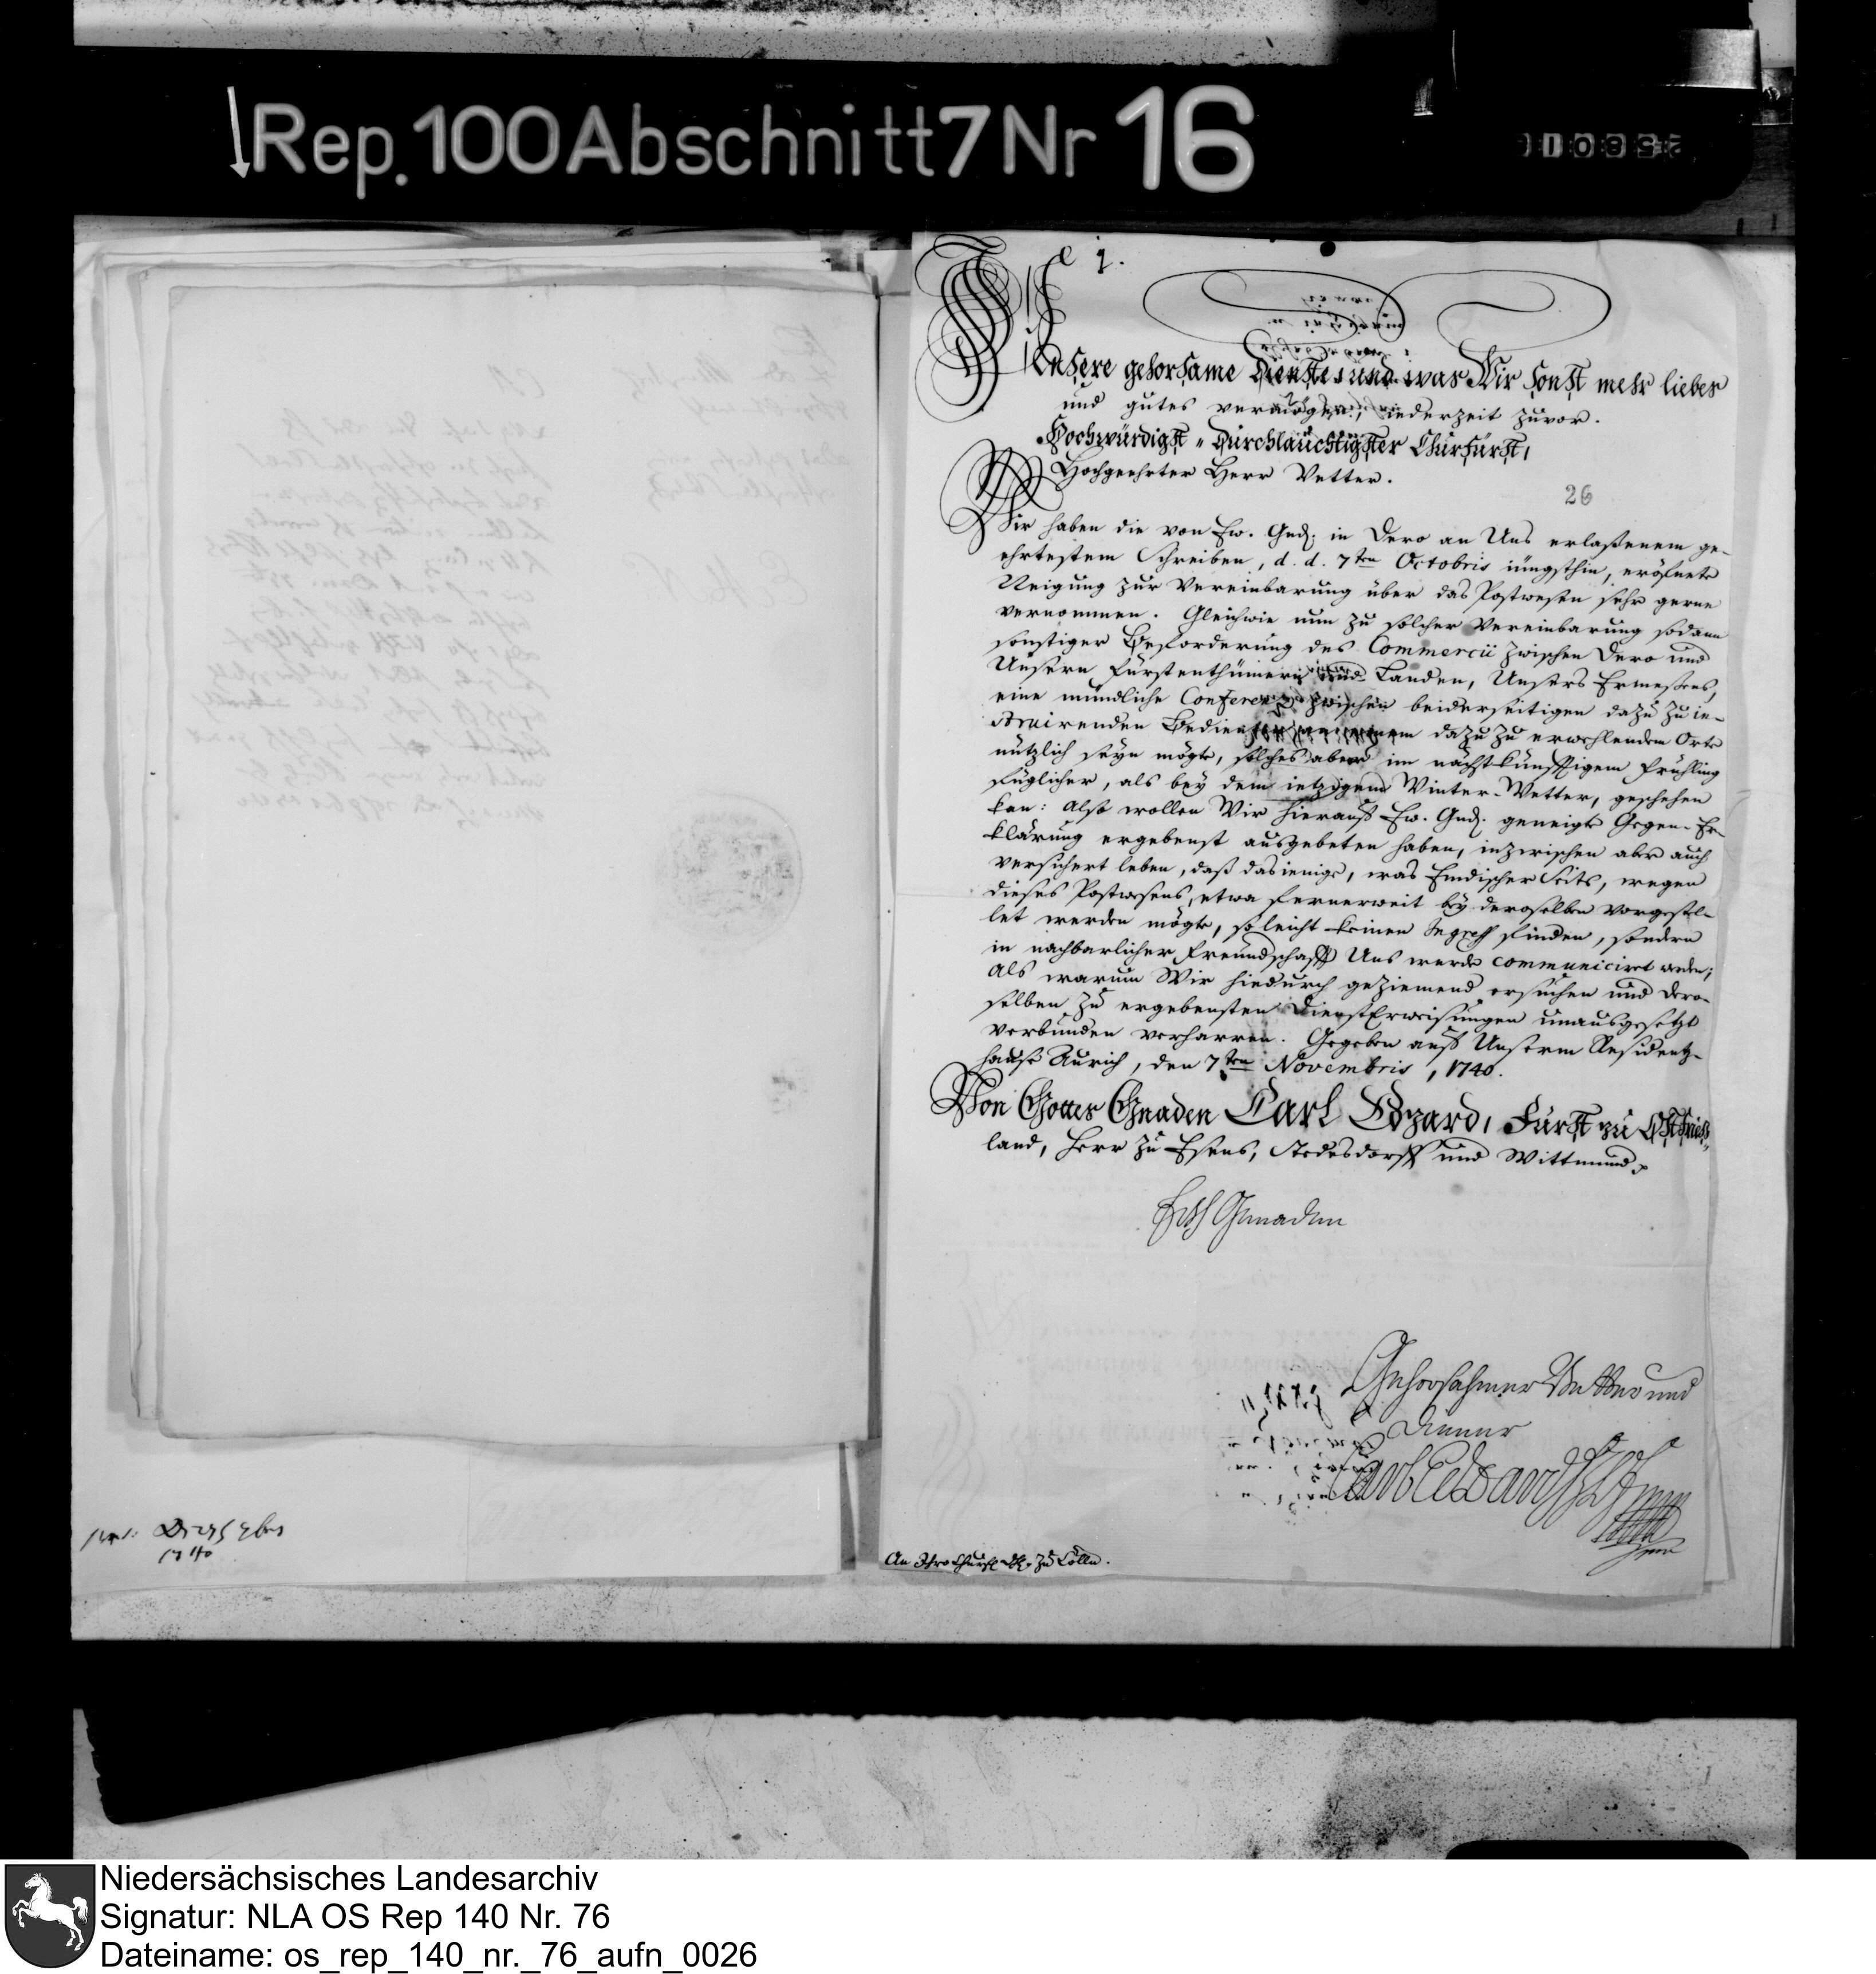 Rep. 100 Abschnitt 7 Nr 16
1.
Unsere gehorsame Dienste und was Wir sonst mehr liebes
und gutes vermögen, iederzeit zuvor.
Hochwürdigst-Durchläuchtigster Churfürst,
Hochgeehrter Herr Vetter.
26
Wir haben die von Ew. Gnd. in Dero an Uns erlaßenem ge-
ehrtestem Schreiben, d. d. 7ten Octobris iüngsthin, eröfnete
Neigung zur Vereinbarung über das Postwesen sehr gerne
vernommen. Gleichwie nun zu solcher Vereinbarung sodann
sonstiger Beforderung des Commercii zwischen Dero und
Unsern Fürstenthümern und Landen, Unsers Ermeßens,
eine mündliche Conferenz zwischen beiderseitigen dazu zu in-
struirenden Bedienten an einem dazu zu erwehlenden Orte
nützlich seyn mögte, solches aber im nächstkünfftigem Frühling
füglicher, als bey dem ietzigem Winter-Wetter, geschehen
kan: Also wollen Wir hierauf Ew. Gnd. geneigte Gegen-Er-
klärung ergebenst ausgebeten haben, inzwischen aber auch
versichert leben, daß dasienige, was Emdischer Seits, wegen
dieses Postwesens, etwa fernerweit bey deroselben vorgestel-
let werden mögte, so leicht keinen Ingress finden, sondern
in nachbarlicher Freundschafft Uns werde communiciret werden;
Als warum Wir hiedurch geziemend ersuchen und Dero-
selben zu ergebensten DienstErweisungen unausgesetzt
verbunden verharren. Gegeben auf Unserm Residentz-
hause Aurich, den 7ten Novembris, 1740.
Von Gottes Gnaden Carl Edzard, Fürst zu Ostfries-
land, Herr zu Esens, Stedesdorff und Wittmund
Ew Gnaden
Gehorsahmer Vetter und
Diener
Carl Edzard
An Ihro Churfl. Dhl. zu Cölln.
1740
Niedersächsisches Landesarchiv
Signatur: NLA OS Rep 140 Nr. 76
Dateiname: os_rep_140_nr._76_aufn_0026